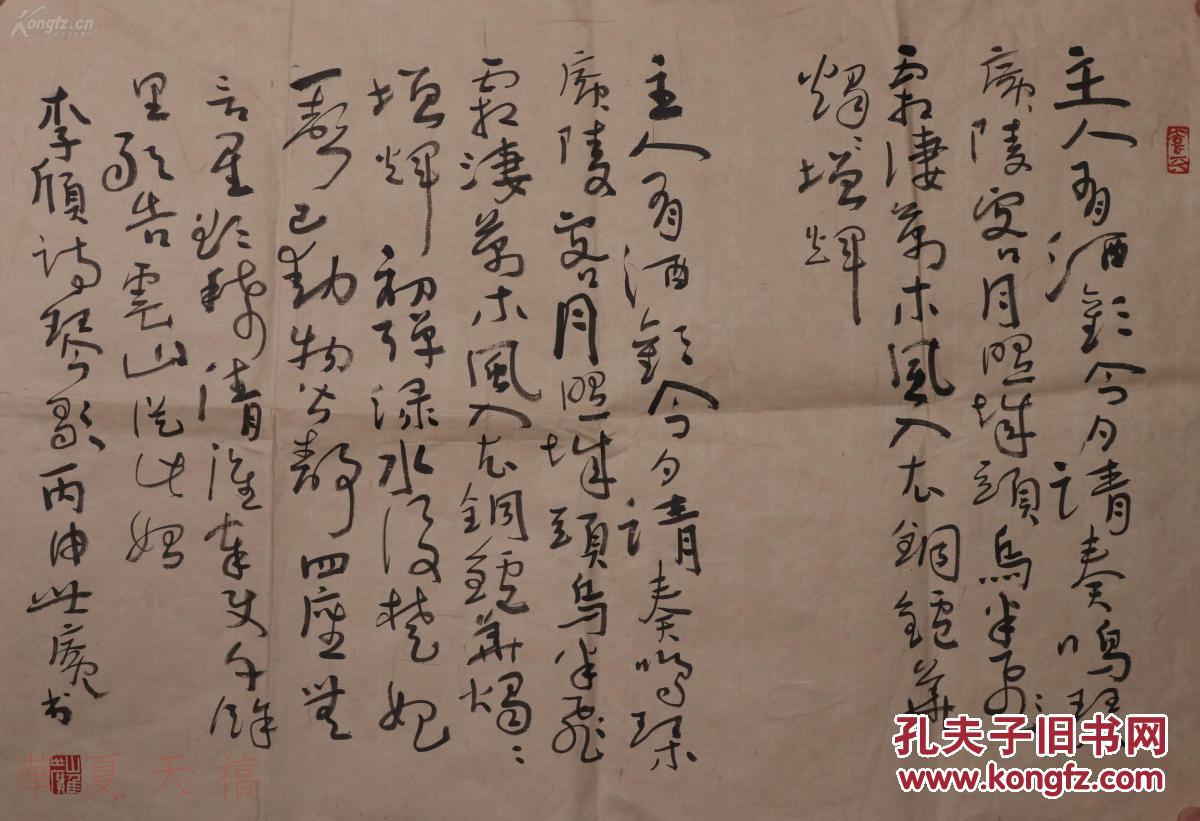 主人有酒歡今夕請奏鳴琴
廣陵客月照城頭烏半飛
霜淒萬木風入衣銅鑪華
燭〻增輝
主人有酒歡今夕請奏鳴琴
廣陵客月照城頭烏半飛
霜淒萬木風入衣銅鑪華燭〻
增輝初彈淥水後楚妃
一聲已動物皆靜四座無
言星欲稀清淮奉使千餘
里敢告雲山從此始
李頎詩琴歌丙申書
Kongfz.cn
華夏天禧
孔夫子旧书网
www.kongfz.com